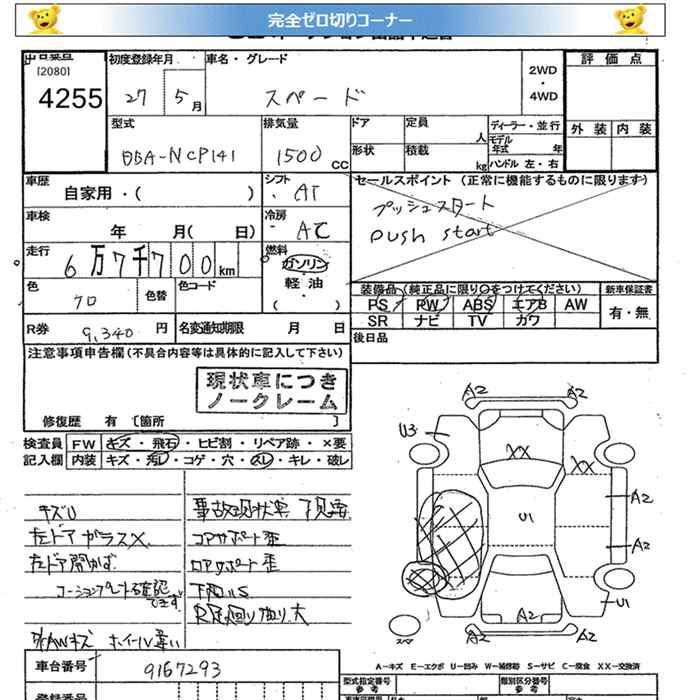 完全ゼロ切りコーナー
[2080]
4255
初度登録年月
27 5月
車名・グレード
スペード
2WD
・
4WD
評価点
外装 内装
型式
DBA-NCP141
排気量
1500 CC
ドア
定員
人
形状
積載
kg
ディーラー・並行
モデル年式 年
ハンドル 左・右
車歴
自家用・( )
シフト
・AT
車検
年 月( 日)
冷房
・AC
セールスポイント (正常に機能するものに限ります)
プッシュスタート
push start
走行
6万7千700km
燃料
ガソリン
軽油
( ・ )
色
クロ
色替
色コード
装備品(純正品に限り○をつけてください)
新車保証書
PS PW ABS エアB AW
SR ナビ TV カワ
有・無
R券
9,340円
名変通知期限 月 日
後日品
注意事項申告欄(不具合内容等は具体的に記入して下さい)
現状車につき
ノークレーム
修復歴 有 〔箇所 〕
検査員
記入欄
FW キズ・飛石・ヒビ割・リペア跡・×要
内装 キズ・汚レ・コゲ・穴・スレ・キレ・破レ
キズU
左ドアガラスX
左ドア開かず
コーションプレート確認できず
外AWキズ ホイール違い
事故現状車
コアサポート歪
ロアサポート歪
下廻りS
A2
A2
U3
XX
XX
A2
U1
A2
U1
A2
A2
A2
スペア
A-キズ E-エクボ U-凹み W-補修跡 S-サビ C-腐食 XX-交換済
車台番号
9167293
登録番号
型式指定番号
参考
類別区分番号
参考